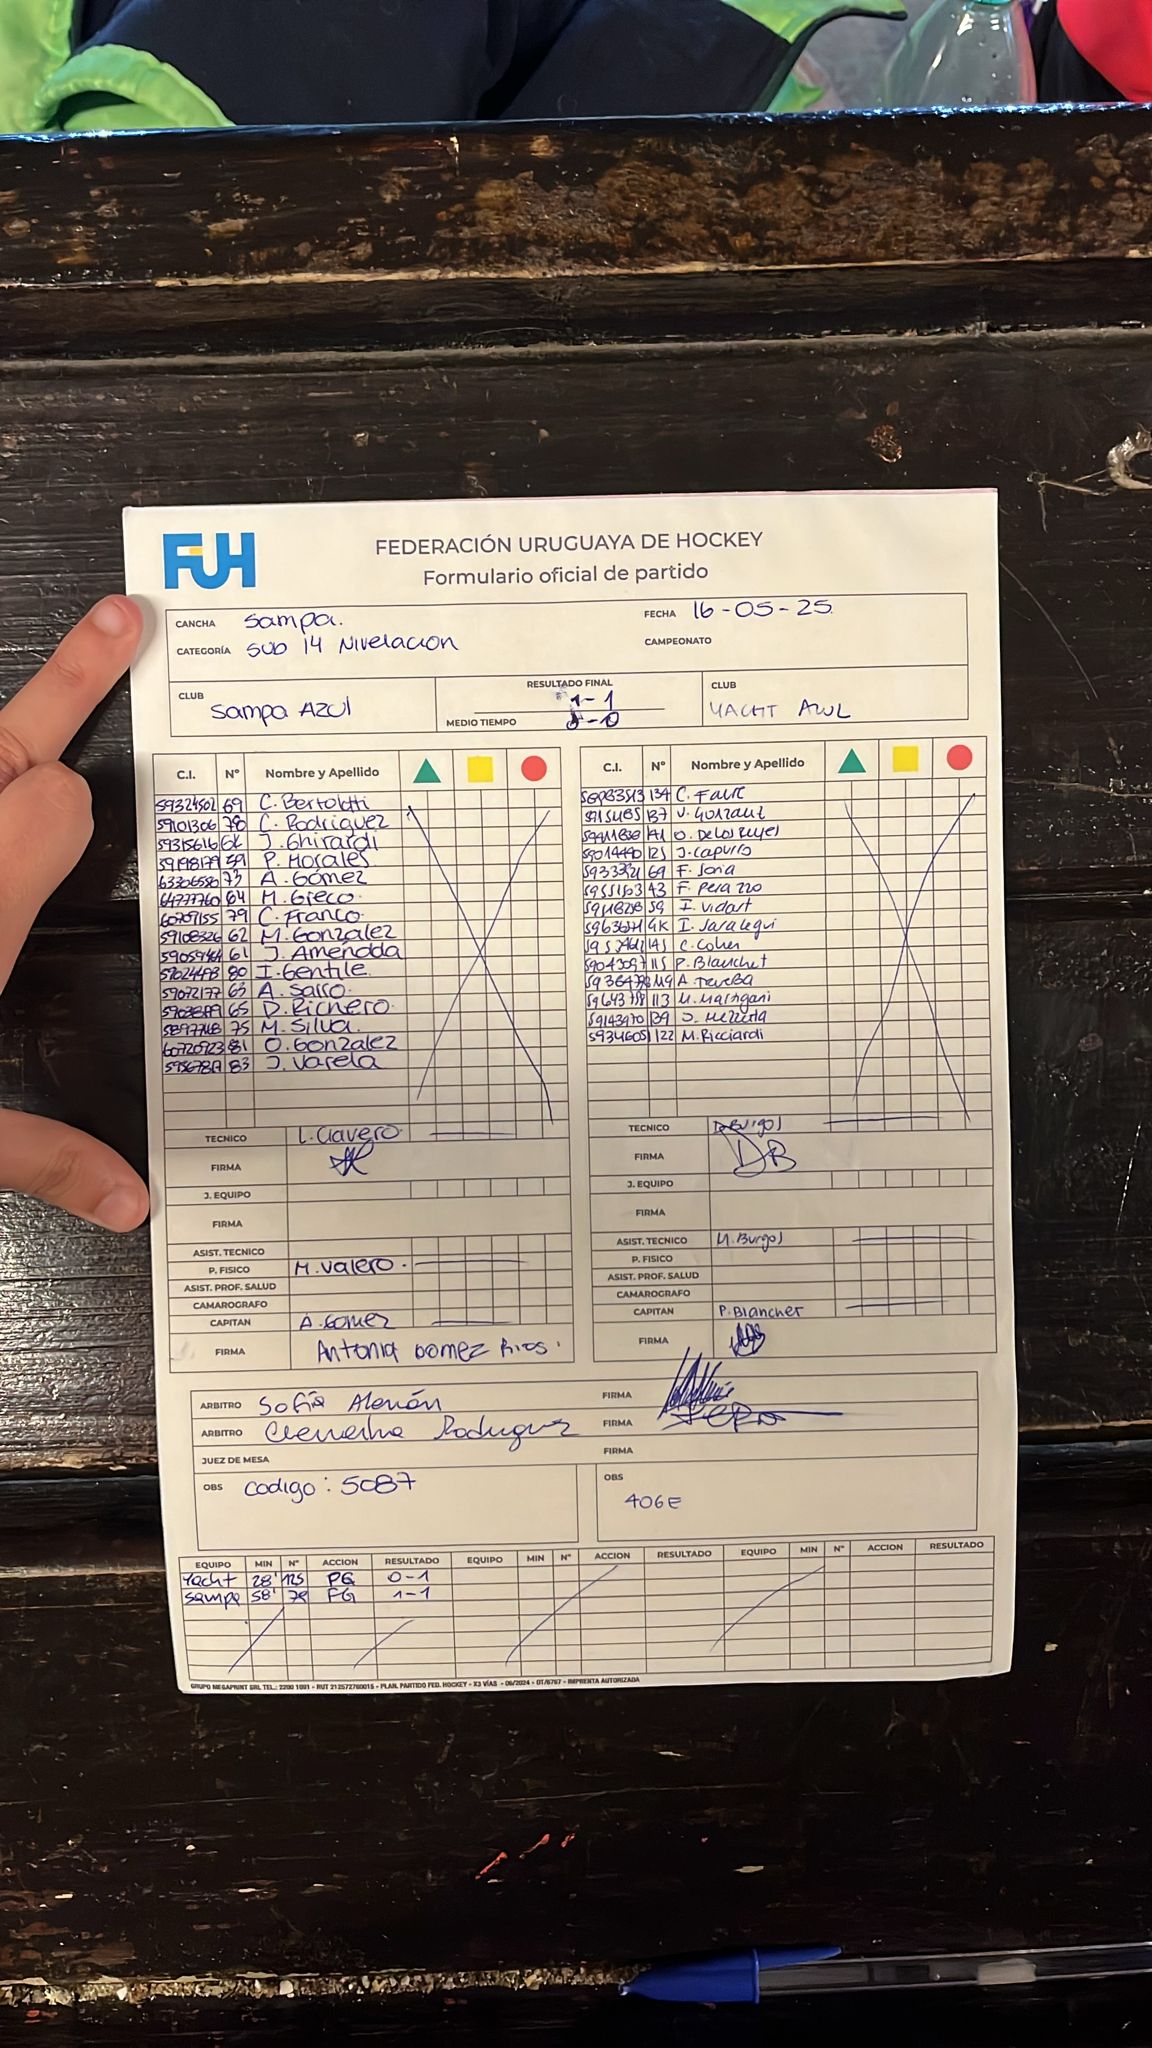 FUH
FEDERACIÓN URUGUAYA DE HOCKEY
Formulario oficial de partido
CANCHA Sampa. FECHA 16-05-25
CATEGORÍA SUB 14 Nivelacion CAMPEONATO
CLUB Sampa Azul RESULTADO FINAL 1-1 CLUB YACHT AZUL
MEDIO TIEMPO -0
C.I. Nº Nombre y Apellido C.I. Nº Nombre y Apellido
59324502 69 C. Bertolotti
59101306 78 C. Rodriguez
59315616 GK J. Ghirardi
59198179 59 P. Morales
63306580 73 A. Gómez
64777760 64 M. Greco
60709155 79 C. Franco
59108326 62 M. Gonzalez
61 J. Amendda
80 I. Gentile
59072177 63 A. Sarro
65 D. Richero
75 M. Silva
60720923 81 O. Gonzalez
83 J. Varela
134 C. Faure
137
141 O. De Los Reyes
59014440 125 J. Capurro
69 F. Soria
43 F. Perazzo
59 I. Vidart
GK I. Saralegui
141 C. Cohen
115 P. Blanchet
119
113
59143470 139
59934605 122 M. Ricciardi
TECNICO L. Clavero TECNICO D. Burgos
FIRMA FIRMA DB
J. EQUIPO J. EQUIPO
FIRMA FIRMA
ASIST. TECNICO ASIST. TECNICO M. Burgos
P. FISICO M. Valero P. FISICO
ASIST. PROF. SALUD ASIST. PROF. SALUD
CAMAROGRAFO CAMAROGRAFO
CAPITAN A. Gomez CAPITAN P. Blanchet
FIRMA Antonia Gomez Rios. FIRMA
ARBITRO Sofía Alemán FIRMA
ARBITRO Clementina Rodriguez FIRMA
JUEZ DE MESA FIRMA
OBS codigo: 5087 OBS 406E
EQUIPO MIN Nº ACCION RESULTADO EQUIPO MIN Nº ACCION RESULTADO EQUIPO MIN Nº ACCION RESULTADO
Yacht 28' 125 PG 0-1
Sampa 58' 78 FG 1-1
GRUPO MEGAPRINT SRL TEL.: 2200 1091 - RUT 212572760015 - PLAN. PARTIDO FED. HOCKEY - X3 VÍAS - 06/2024 - OT/6767 - IMPRENTA AUTORIZADA